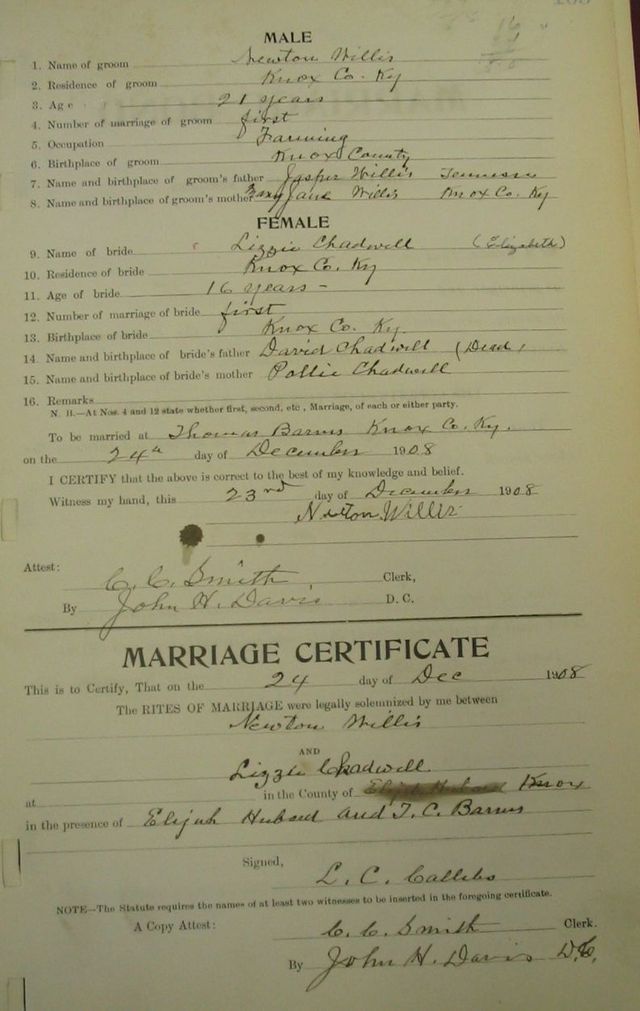 MALE
1. Name of groom Newton Willis
2. Residence of groom Knox Co. Ky
3. Age 21 years
4. Number of marriage of groom first
5. Occupation Farming
6. Birthplace of groom Knox County
7. Name and birthplace of groom's father Jasper Willis Tennessee
8. Name and birthplace of groom's mother Jane Willis Knox Co. Ky
FEMALE
9. Name of bride Lizzie Chadwell (Elizabeth)
10. Residence of bride Knox Co. Ky
11. Age of bride 16 years -
12. Number of marriage of bride first
13. Birthplace of bride Knox Co. Ky.
14. Name and birthplace of bride's father David Chadwell (Dead)
15. Name and birthplace of bride's mother Pollie Chadwell
16. Remarks
N. B.—At Nos. 4 and 12 state whether first, second, etc., Marriage, of each or either party.
To be married at Thomas Barns Knox Co. Ky.
on the 24th day of December 1908
I CERTIFY that the above is correct to the best of my knowledge and belief.
Witness my hand, this 23rd day of December 1908
Newton Willis
Attest:
C. C. Smith Clerk,
By John H. Davis D. C.
MARRIAGE CERTIFICATE
This is to Certify, That on the 24 day of Dec 1908
The RITES OF MARRIAGE were legally solemnized by me between
Newton Willis
AND
Lizzie Chadwell
at in the County of Knox
in the presence of Elijah Hubard and T. C. Barns
Signed,
L. C.
NOTE—The Statute requires the names of at least two witnesses to be inserted in the foregoing certificate.
A Copy Attest: C. C. Smith Clerk.
By John H. Davis D.C.